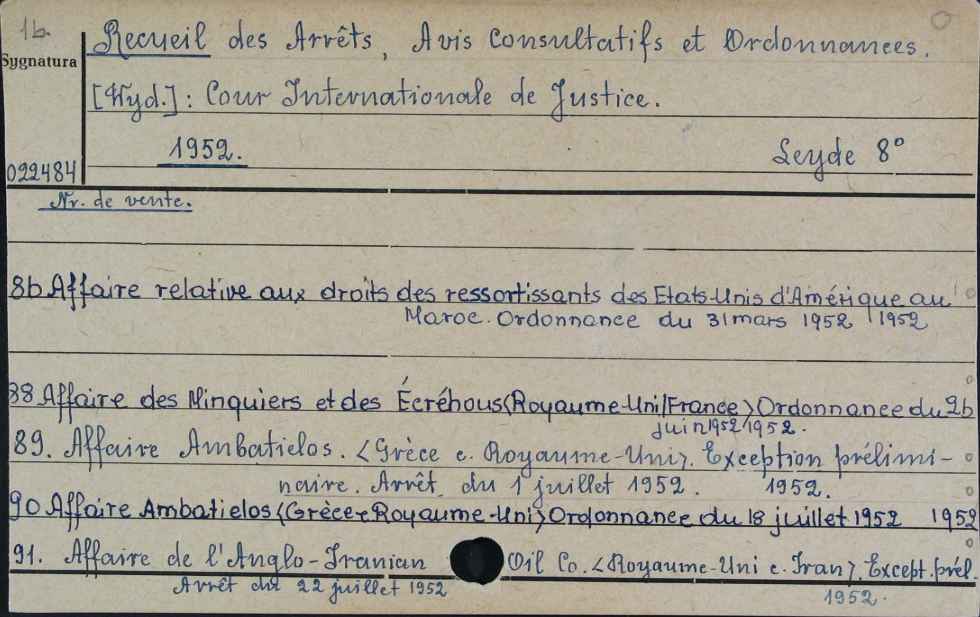 1b.
Sygnatura
022484
Recueil des Arrêts, Avis Consultatifs et Ordonnances.
[Wyd.]: Cour Internationale de Justice.
1952. Leyde 8°
Nr. de vente.
86 Affaire relative aux droits des ressortissants des Etats-Unis d'Amérique au
Maroc. Ordonnance du 31 mars 1952 1952
88 Affaire des Minquiers et des Écréhous <Royaume-Uni/France> Ordonnance du 26
juin 1952 1952.
89. Affaire Ambatielos. <Grèce c. Royaume-Uni>. Exception prélimi-
naire. Arrêt du 1 juillet 1952. 1952.
90 Affaire Ambatielos <Grèce c Royaume-Uni> Ordonnance du 18 juillet 1952 1952
91. Affaire de l'Anglo-Iranian Oil Co. <Royaume-Uni c. Iran>. Except. prél.
Arrêt du 22 juillet 1952 1952.